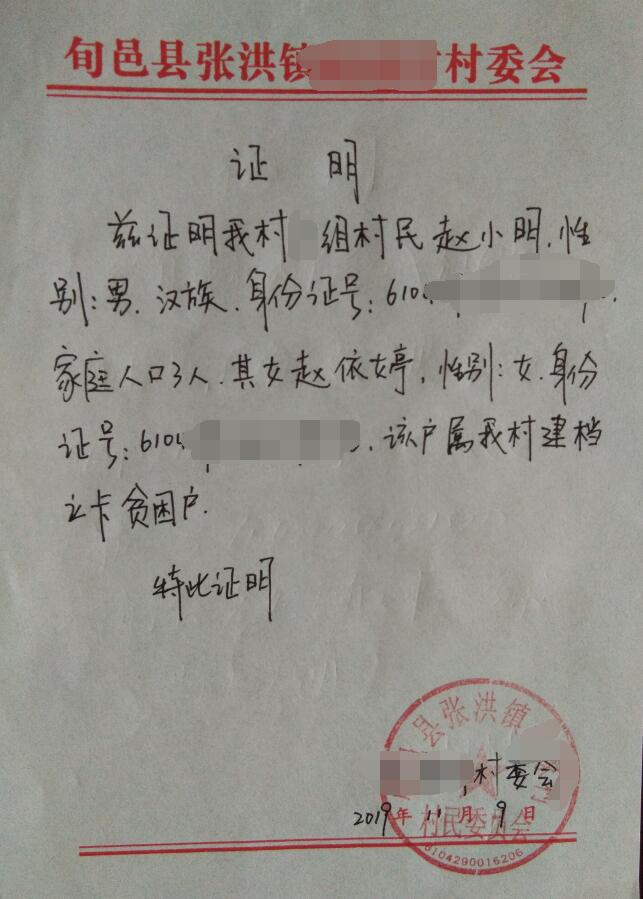 旬邑县张洪镇 村委会
证 明
兹证明我村 组村民赵小明,性
别:男,汉族,身份证号:610
家庭人口3人,其女赵依婷,性别:女,身份
证号:610 ,该户属我村建档
立卡贫困户.
特此证明
县张洪镇
村委会
2019年11月9日
村民委员会
6104290016206